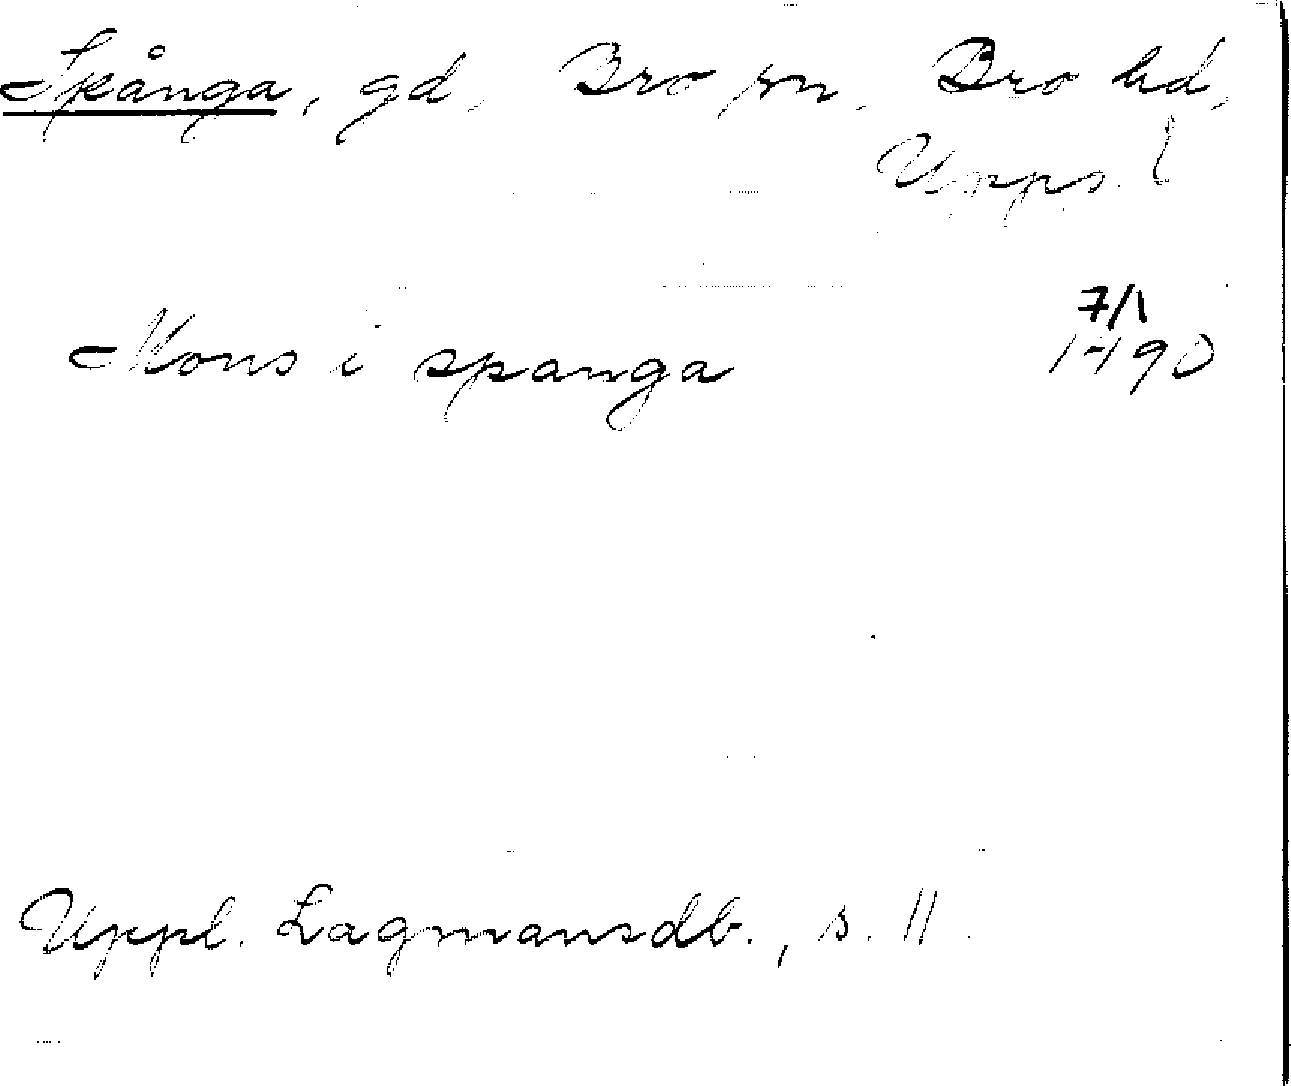 Spånga, gd, Bro sn. Bro hd,
Upps. l
7/1
Mons i spanga 1490
Uppl. Lagmansdb., s. 11.